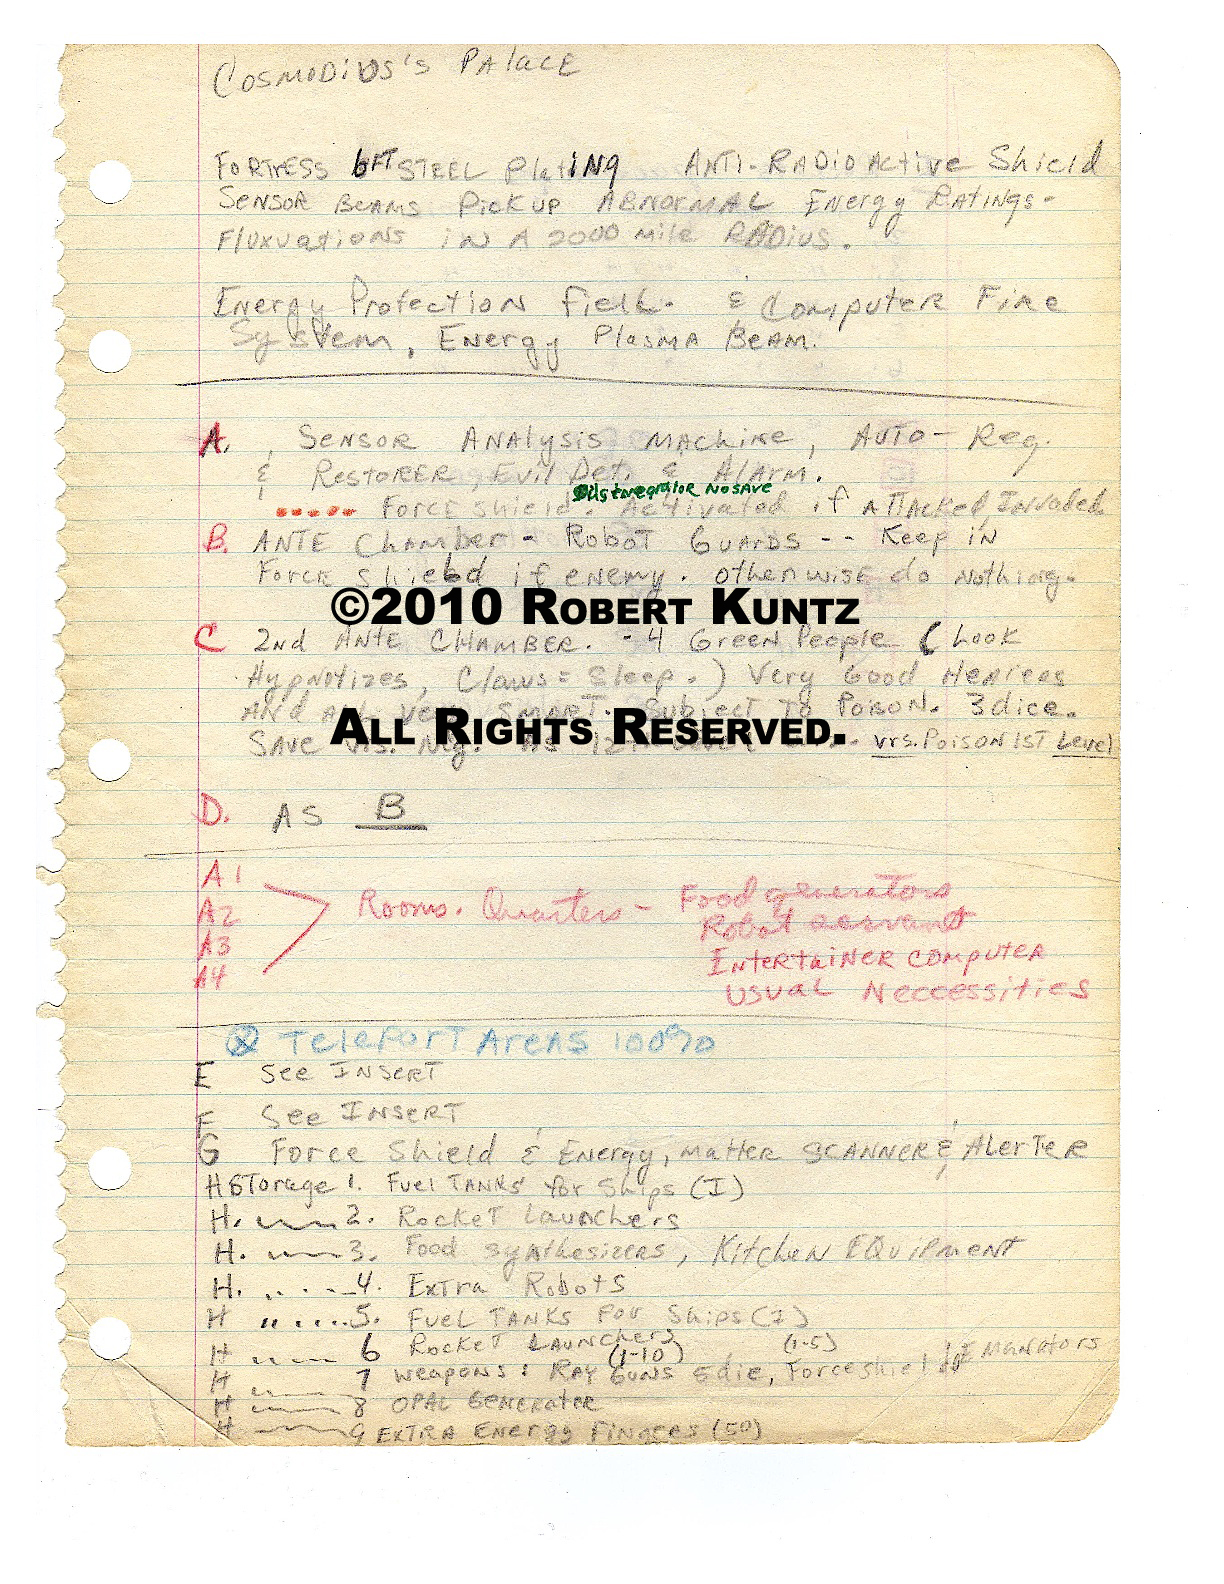 Cosmodius's Palace
Fortress 6FT Steel Plating Anti-Radioactive Shield
Sensor Beams Pick up Abnormal Energy Ratings-
Fluxuations in a 2000 mile Radius.
Energy Protection Field. & Computer Fire
System, Energy Plasma Beam.
A. , Sensor Analysis Machine, Auto-Reg.
& Restorer, Evil Det. & Alarm.
Disintegrator No Save
Force Shield. Activated if Attacked, Invaded
B. Ante Chamber - Robot Guards -- Keep in
Force Shield if enemy. otherwise do nothing.
©2010 Robert Kuntz
C 2nd Ante Chamber. - 4 Green People (Look
Hypnotizes, Claws = Sleep.) Very Good
And Are Very Smart. Subject to Poison. 3 dice.
All Rights Reserved.
Save Vrs. 12th Level vrs. Poison 1st Level
D. As B
A1
A2 Rooms. Quarters - Food generators
A3 Robot servant
A4 Intertainer computer
Usual Neccessities
Teleport Areas 100%
E See Insert
F See Insert
G Force Shield & Energy, Matter Scanner & Alerter
H Storage 1. Fuel Tanks for Ships (I)
H. 2. Rocket Launchers
H. 3. Food synthesizers, Kitchen Equipment
H. 4. Extra Robots
H " .... 5. Fuel Tanks for Ships (I)
H 6 Rocket Launchers
(1-10) (1-5)
H 7 Weapons: Ray Guns 5 die, Forceshield Emanators
H 8 Opal Generater
H 9 Extra Energy (50)